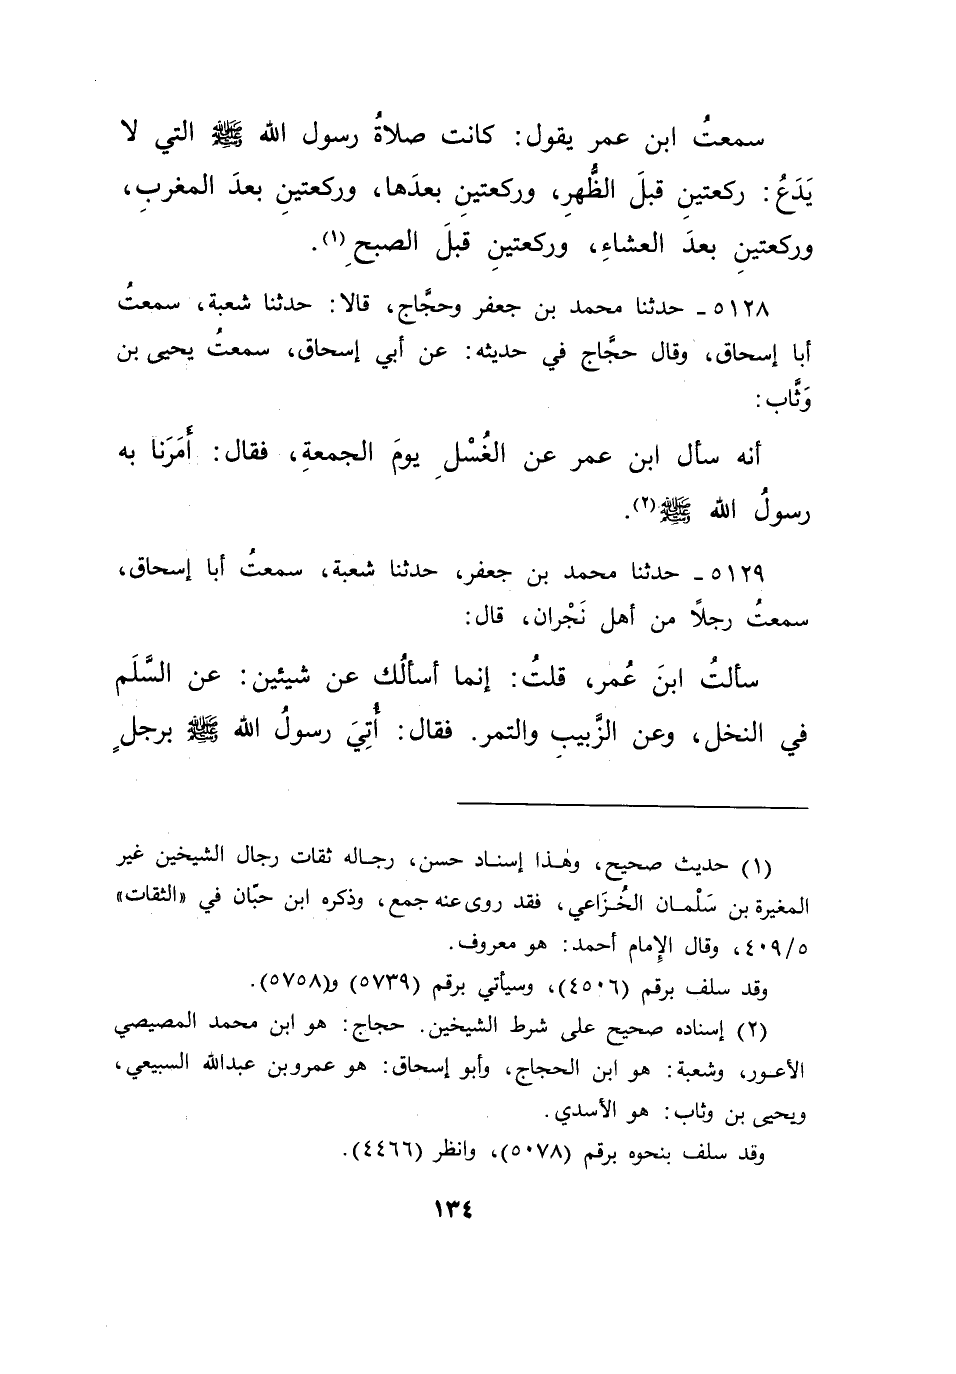 سمعتُ ابن عمر يقول: كانت صلاةُ رسول الله ﷺ التي لا
يَدَعُ: ركعتينِ قبلَ الظُّهرِ، وركعتينِ بعدَها، وركعتينِ بعدَ المغربِ،
وركعتينِ بعدَ العشاءِ، وركعتينِ قبلَ الصبحِ(١).
٥١٢٨ - حدثنا محمد بن جعفر وحجَّاج، قالا: حدثنا شعبة، سمعتُ
أبا إسحاق، وقال حجَّاج في حديثه: عن أبي إسحاق، سمعتُ يحيى بن
وَثَّاب:
أنه سأل ابن عمر عن الغُسْلِ يومَ الجمعةِ، فقال: أَمَرَنا به
رسولُ الله ﷺ(٢).
٥١٢٩ - حدثنا محمد بن جعفر، حدثنا شعبة، سمعتُ أبا إسحاق،
سمعتُ رجلًا من أهل نَجْران، قال:
سألتُ ابنَ عُمر، قلتُ: إنما أسألُك عن شيئين: عن السَّلَم
في النخل، وعن الزَّبيبِ والتمر. فقال: أُتِيَ رسولُ الله ﷺ برجلٍ
(١) حديث صحيح، وهٰذا إسناد حسن، رجاله ثقات رجال الشيخين غير
المغيرة بن سَلْمان الخُزَاعي، فقد روى عنه جمع، وذكره ابن حبّان في «الثقات»
٤٠٩/٥، وقال الإمام أحمد: هو معروف.
وقد سلف برقم (٤٥٠٦)، وسيأتي برقم (٥٧٣٩) و(٥٧٥٨).
(٢) إسناده صحيح على شرط الشيخين. حجاج: هو ابن محمد المصيصي
الأعور، وشعبة: هو ابن الحجاج، وأبو إسحاق: هو عمرو بن عبدالله السبيعي،
ويحيى بن وثاب: هو الأسدي.
وقد سلف بنحوه برقم (٥٠٧٨)، وانظر (٤٤٦٦).
١٣٤